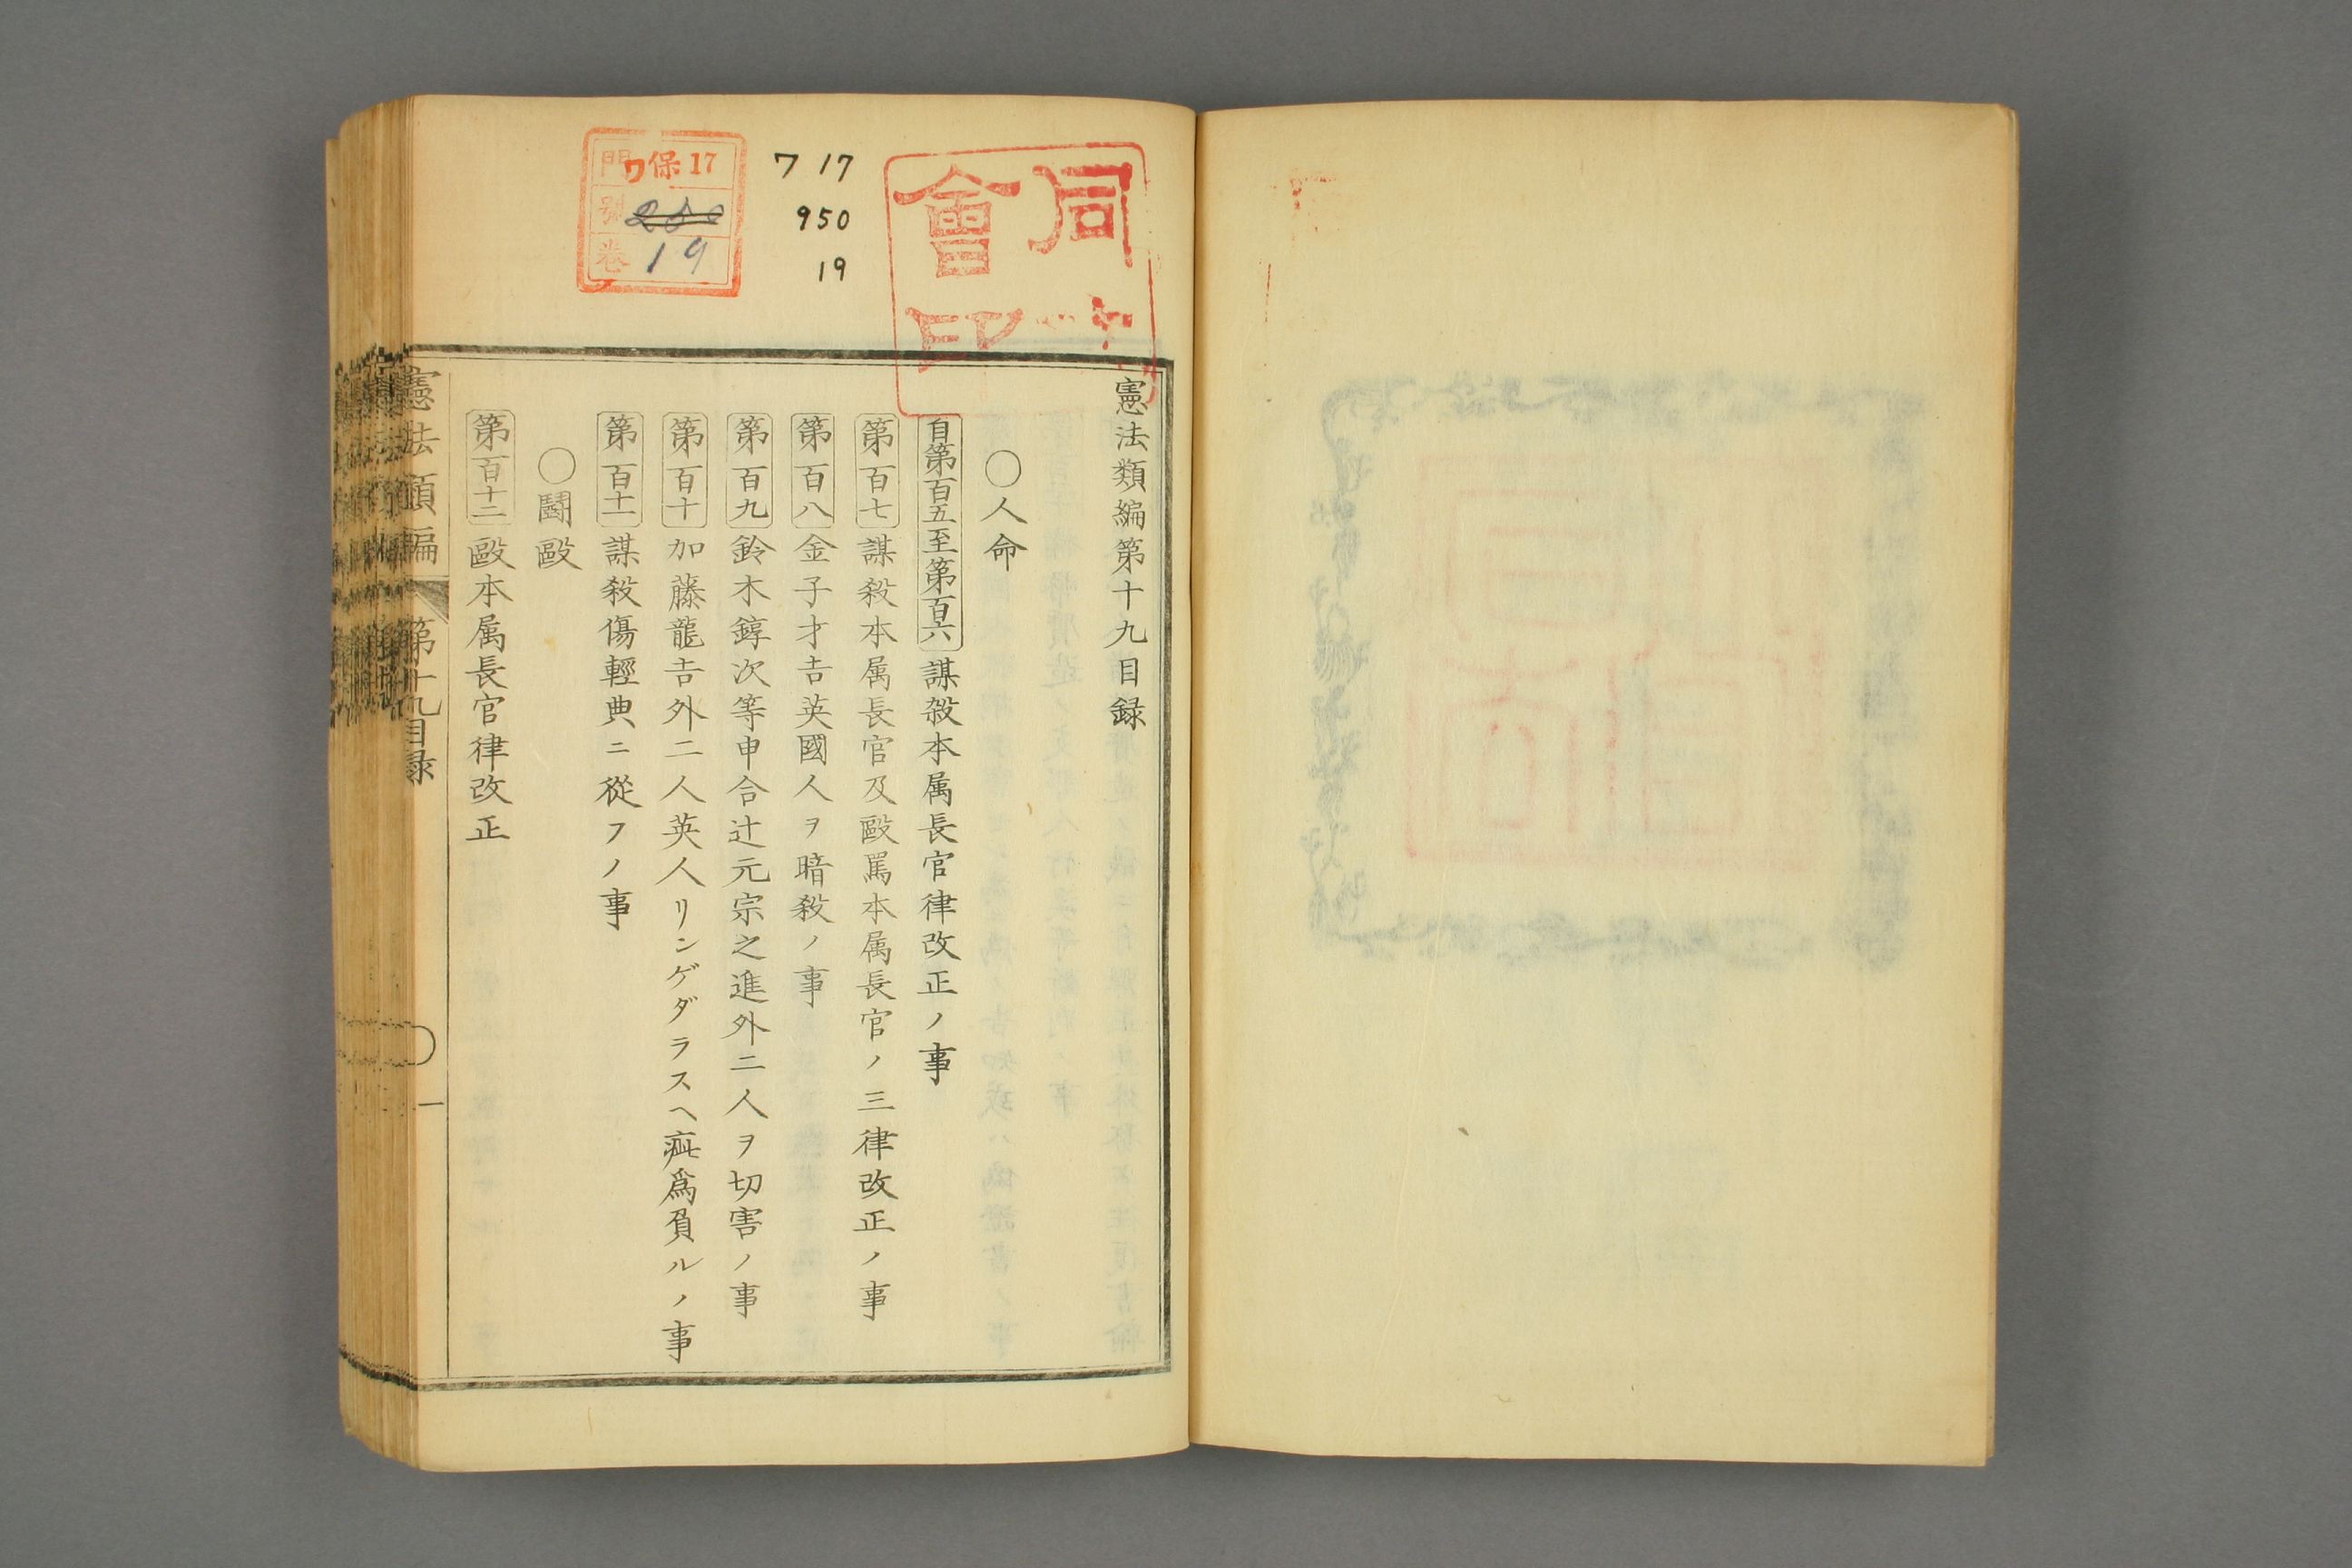 憲法類編第十九目録
○人命
自第百五至第百六 謀殺本属長官律改正ノ事
第百七 謀殺本属長官及毆罵本属長官ノ三律改正ノ事
第百八 金子才吉英國人ヲ暗殺ノ事
第百九 鈴木錞次等申合辻元宗之進外二人ヲ切害ノ事
第百十 加藤龍吉外二人英人リンゲダラスヘ疵爲負ルノ事
第百十一 謀殺傷輕典ニ從フノ事
○鬪毆
第百十二 毆本属長官律改正
憲法類編 第十九目録
一
ワ 17
950
19
門 ワ保17
號
卷 19
同
會印